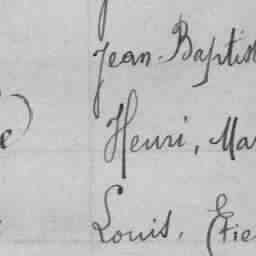 Jean-Baptis
e) Henri, Mar
Louis, Etie